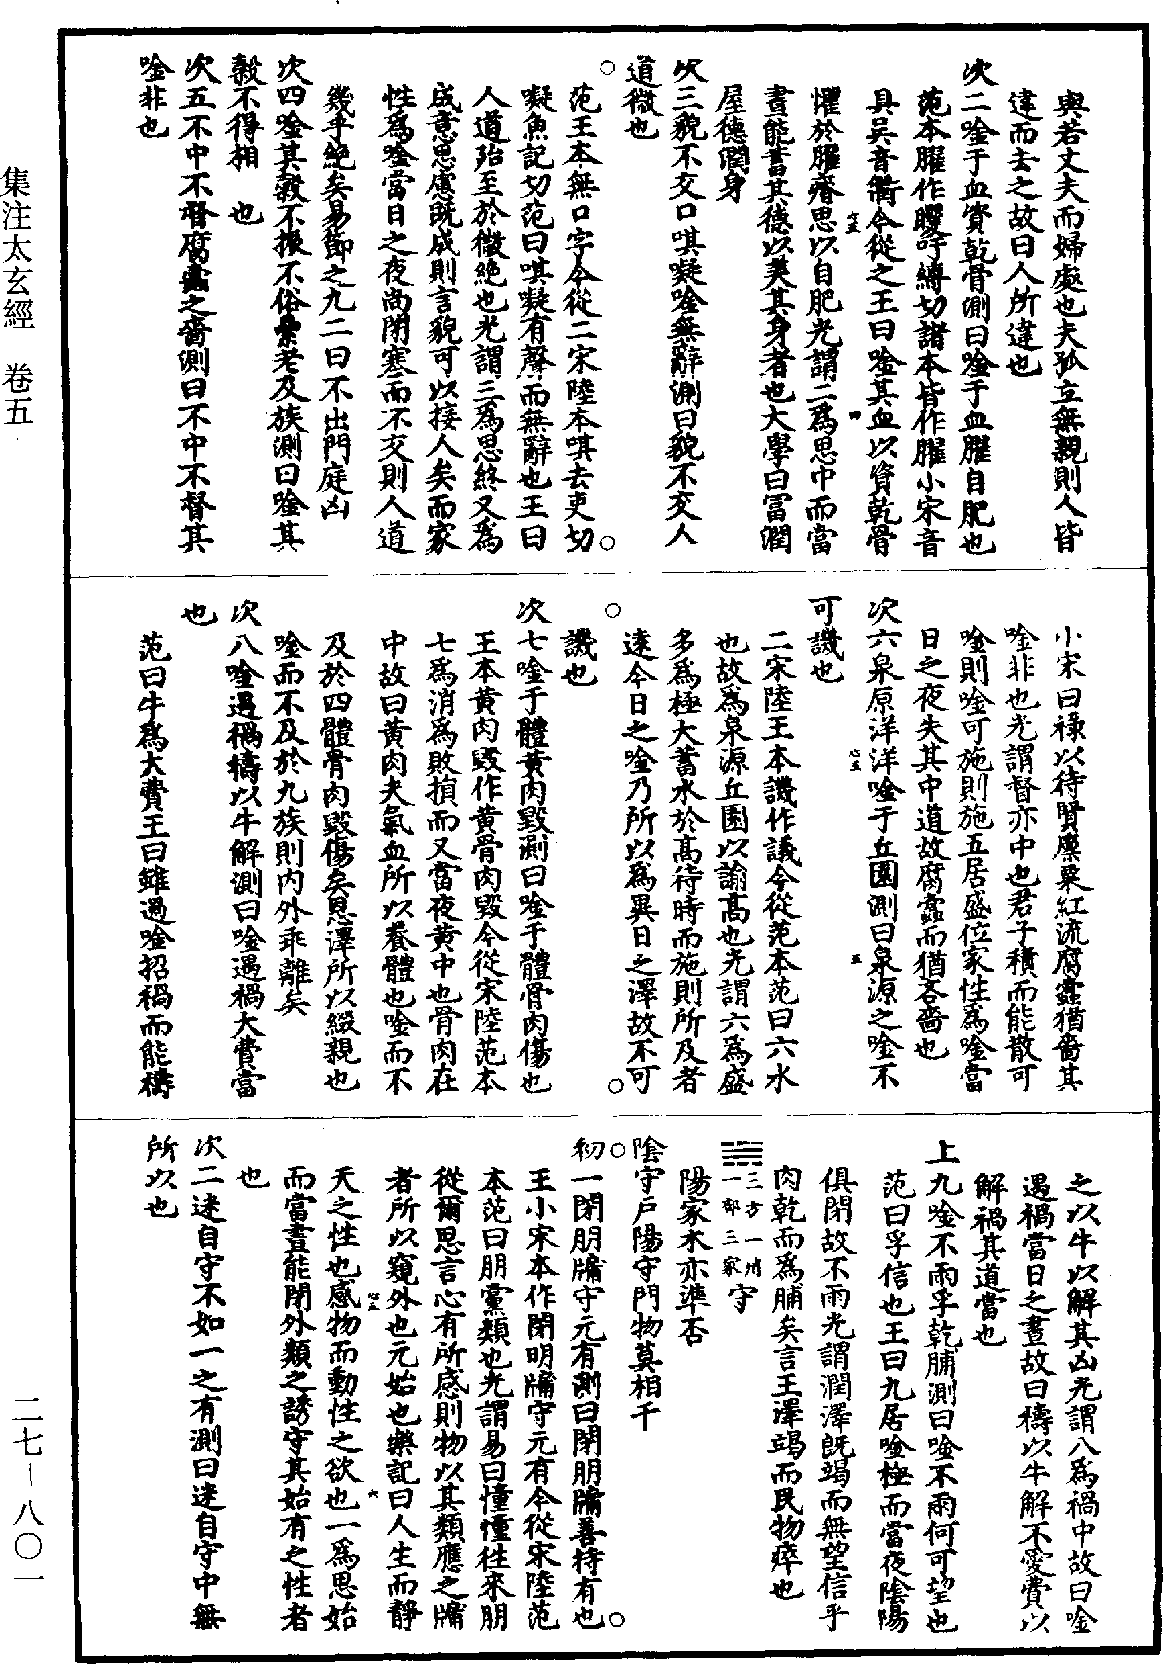 與若丈夫而婦處也夫孤立無親則人皆
違而去之故曰人所違也
次二唫于血資乾骨測曰唫于血臞自肥也
范本臞作矍吁縛切諸本皆作臞小宋音
具吳音衢今從之王曰唫其血以資乾骨
懼於臞瘠思以自肥光謂二為思中而當
晝能蓄其德以美其身者也大學曰富潤
屋德潤身
次三貌不交口唭㘈唫無辭測曰貌不交人
道微也
范王本無口字今從二宋陸本唭去吏切
㘈魚記切范曰唭㘈有聲而無辭也王曰
人道殆至於微絶也光謂三為思終又為
成意思慮既成則言貌可以接人矣而家
性為唫當日之夜尚閉塞而不交則人道
幾乎絶矣易節之九二曰不出門庭凶
次四唫其穀不振不俗纍老及族測曰唫其
穀不得相 也
次五不中不督腐蠹之嗇測曰不中不督其
唫非也
小宋曰祿以待賢廪粟紅流腐蠹猶嗇其
唫非也光謂督亦中也君子積而能散可
唫則唫可施則施五居盛位家性為唫當
日之夜失其中道故腐蠹而猶吝嗇也
次六泉原洋洋唫于丘園測曰泉源之唫不
可譏也
二宋陸王本譏作議今從范本范曰六水
也故為泉源丘園以諭高也光謂六為盛
多為極大蓄水於高待時而施則所及者
遠今日之唫乃所以為異日之澤故不可
譏也
次七唫于體黃肉毀測曰唫于體骨肉傷也
王本黃肉毀作黃骨肉毀今從宋陸范本
七為消為敗損而又當夜黃中也骨肉在
中故曰黃肉夫氣血所以養體也唫而不
及於四體骨肉毀傷矣恩澤所以綴親也
唫而不及於九族則内外乖離矣
次八唫遇禍禱以牛解測曰唫遇禍大費當
也
范曰牛為大費王曰雖過唫招禍而能禱
之以牛以解其凶光謂八為禍中故曰唫
遇禍當日之晝故曰禱以牛解不愛費以
解禍其道當也
上九唫不雨孚乾脯測曰唫不雨何可望也
范曰孚信也王曰九居唫極而當夜陰陽
俱閉故不雨光謂潤澤既竭而無望信乎
肉乾而為脯矣言王澤竭而民物瘁也
三方一州
一部三家 守
陽家木亦準否
陰守戶陽守門物莫相干
初一閉朋牖守元有測曰閉朋牖善持有也
王小宋本作閉明牖守元有今從宋陸范
本范曰朋黨類也光謂易曰憧憧往來朋
從爾思言心有所感則物以其類應之牖
者所以窺外也元始也樂記曰人生而靜
天之性也感物而動性之欲也一為思始
而當晝能閉外類之誘守其始有之性者
也
次二迷自守不如一之有測曰迷自守中無
所以也
集注太玄經 卷五
二七－八〇一